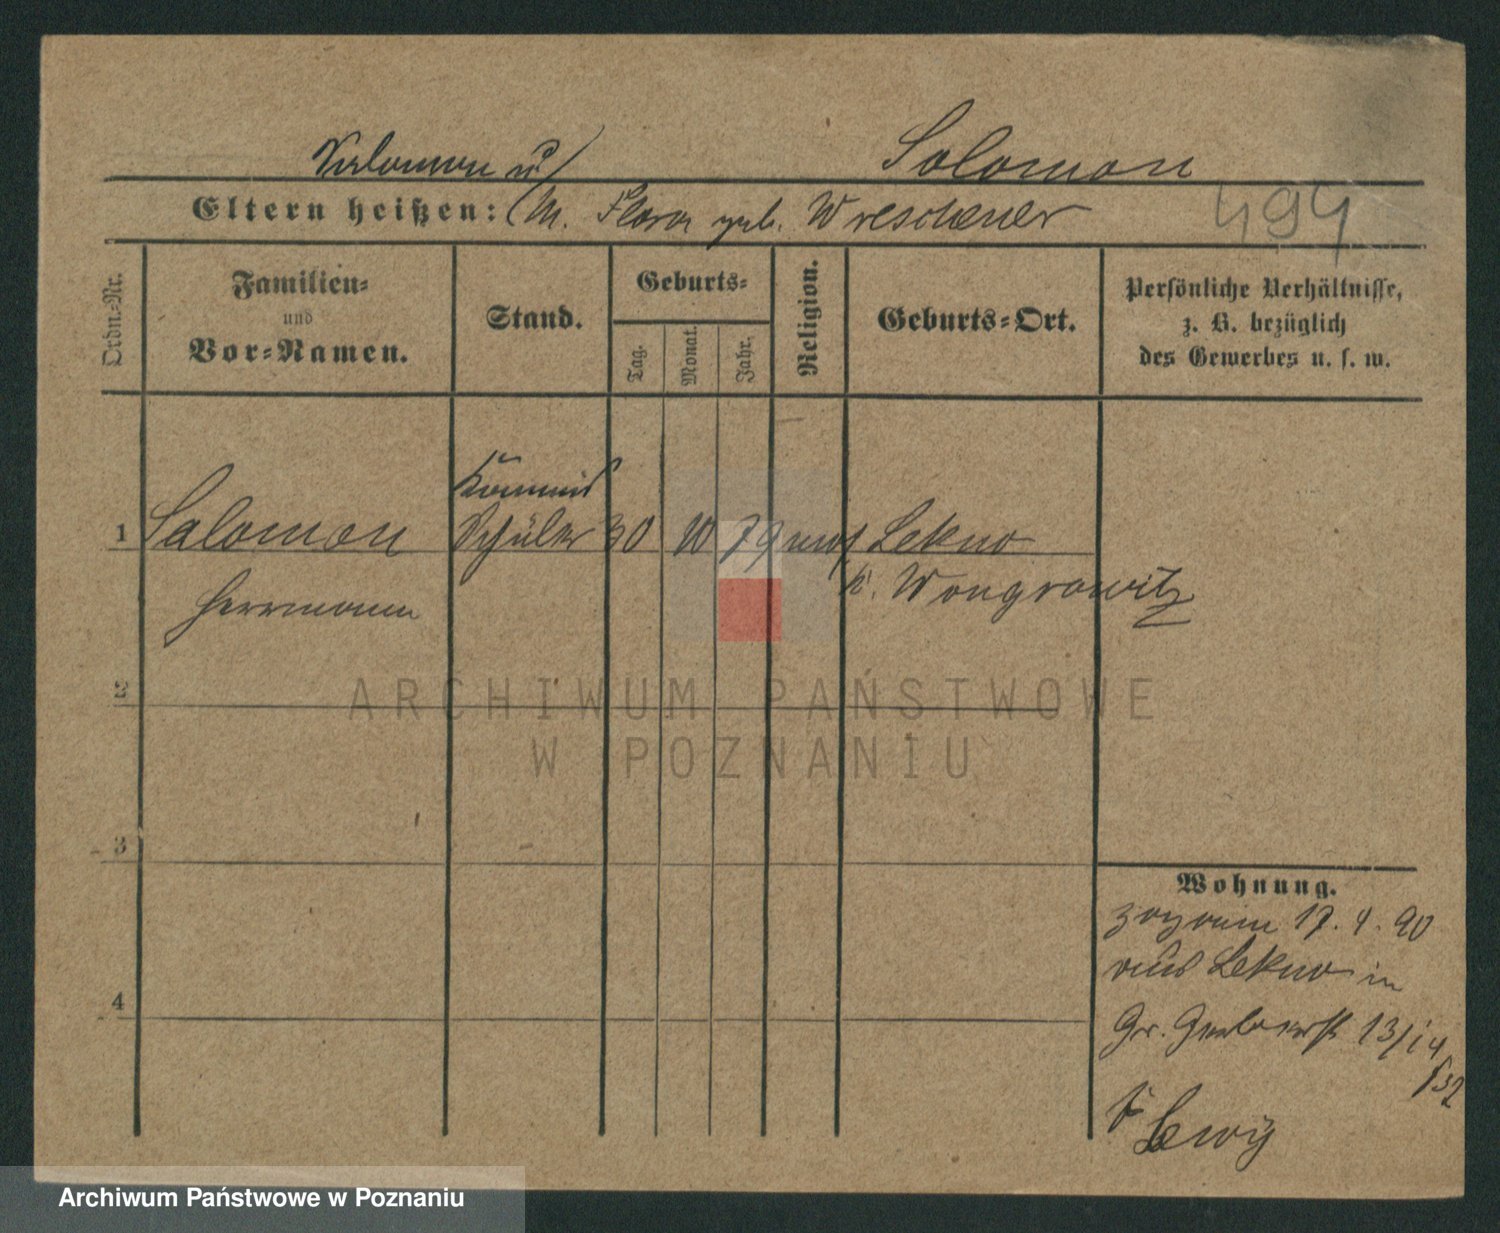 Salomon
Salomon u
Eltern heißen: M. Flora geb. Wreschener
494
Ordn.-Nr.
Familien-
und
Vor-Namen.
Stand.
Geburts-
Tag.
Monat.
Jahr.
Religion.
Geburts-Ort.
Persönliche Verhältnisse,
z. B. bezüglich
des Gewerbes u. s. w.
Kommis
1 Salomon Schüler 30 10 79 mos Lekno
Herrmann K. Wongrowitz
2
ARCHIWUM PAŃSTWOWE
W POZNANIU
3
Wohnung.
zog am 17. 4. 90
aus Lekno in
4
Gr. Gerberstr 13/14
b Lewy
Archiwum Państwowe w Poznaniu